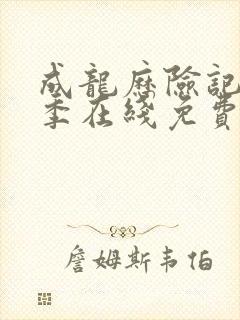 成龍歷險記
季在綫免費
詹姆斯韦伯